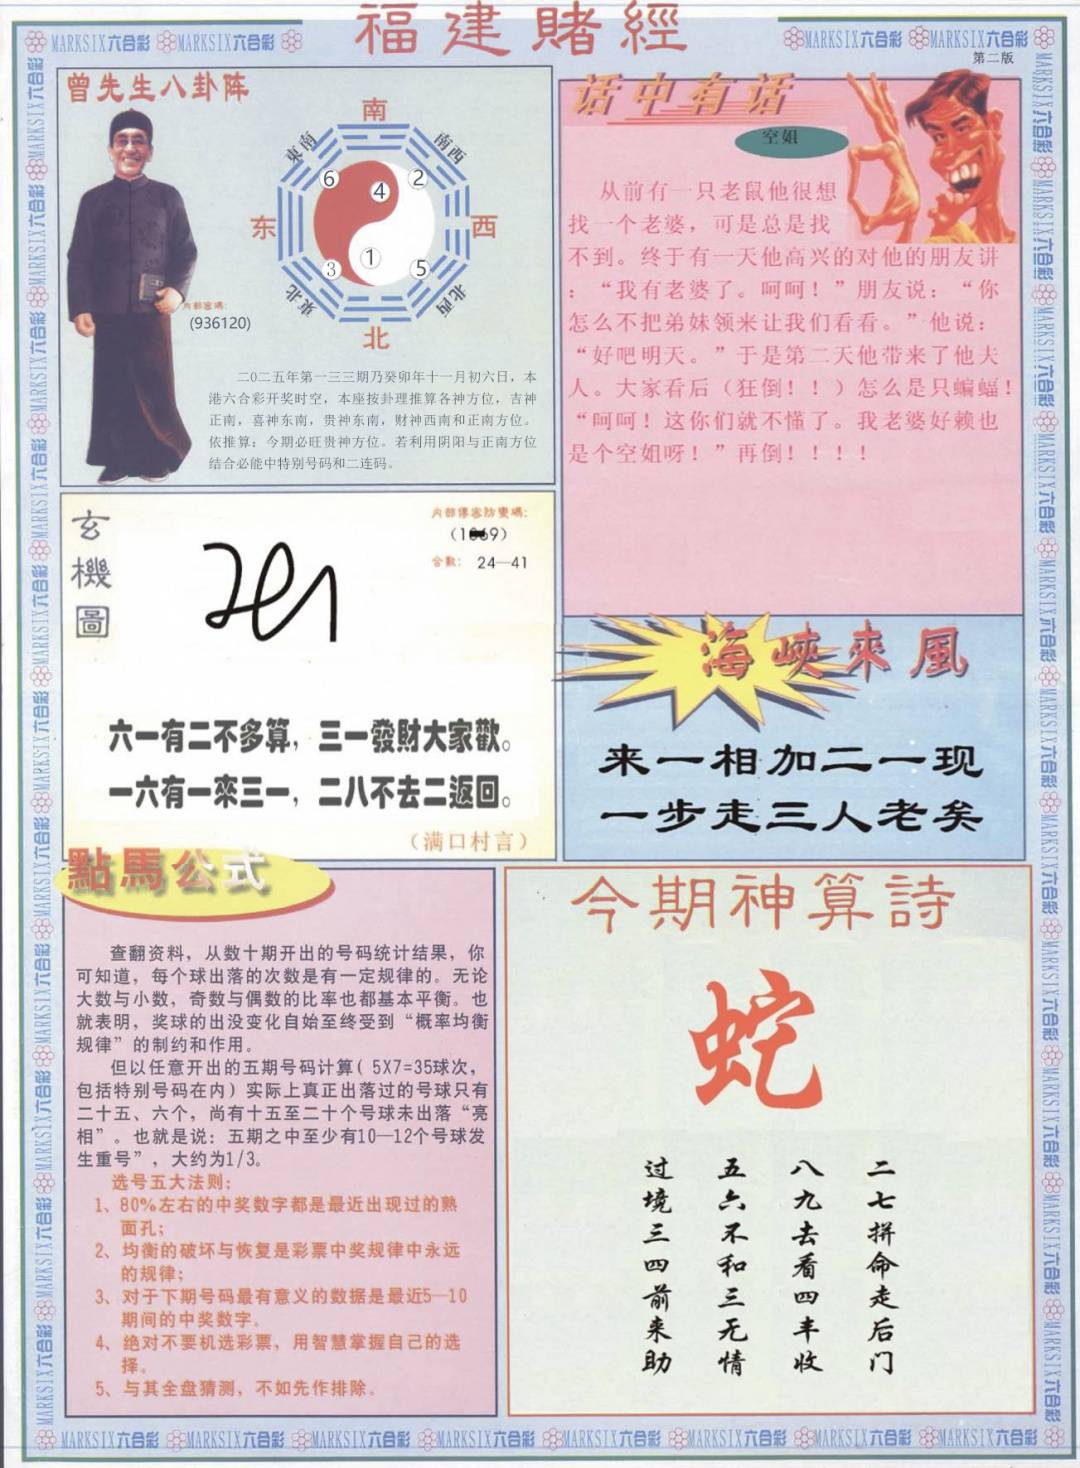 福建賭經
MARKSIX六合彩 MARKSIX六合彩
MARKSIX六合彩 MARKSIX六合彩
第二版
曾先生八卦阵
南
東南
南西
6
4
2
东
西
3
1
5
東北
北西
北
内部密碼：
(936120)
二〇二五年第一三三期乃癸卯年十一月初六日，本
港六合彩开奖时空，本座按卦理推算各神方位，吉神
正南，喜神东南，贵神东南，财神西南和正南方位。
依推算：今期必旺贵神方位。若利用阴阳与正南方位
结合必能中特别号码和二连码。
话中有话
空姐
从前有一只老鼠他很想
找一个老婆，可是总是找
不到。终于有一天他高兴的对他的朋友讲
：“我有老婆了。呵呵！”朋友说：“你
怎么不把弟妹领来让我们看看。”他说：
“好吧明天。”于是第二天他带来了他夫
人。大家看后（狂倒！！）怎么是只蝙蝠！
“呵呵！这你们就不懂了。我老婆好赖也
是个空姐呀！”再倒！！！！
玄機圖
内部傳密防變碼：
(1 69)
合數： 24—41
六一有二不多算，三一發財大家歡。
一六有一來三一，二八不去二返回。
（满口村言）
海峽來風
来一相加二一现
一步走三人老矣
點馬公式
查翻资料，从数十期开出的号码统计结果，你
可知道，每个球出落的次数是有一定规律的。无论
大数与小数，奇数与偶数的比率也都基本平衡。也
就表明，奖球的出没变化自始至终受到“概率均衡
规律”的制约和作用。
但以任意开出的五期号码计算( 5X7=35球次，
包括特别号码在内）实际上真正出落过的号球只有
二十五、六个，尚有十五至二十个号球未出落“亮
相”。也就是说：五期之中至少有10—12个号球发
生重号”，大约为1/3。
选号五大法则：
1、80%左右的中奖数字都是最近出现过的熟
面孔；
2、均衡的破坏与恢复是彩票中奖规律中永远
的规律；
3、对于下期号码最有意义的数据是最近5—10
期间的中奖数字。
4、绝对不要机选彩票，用智慧掌握自己的选
择。
5、与其全盘猜测，不如先作排除。
今期神算詩
蛇
二七拼命走后门
八九去看四丰收
五六不和三无情
过境三四前来助
MARKSIX六合彩 MARKSIX六合彩 MARKSIX六合彩 MARKSIX六合彩 MARKSIX六合彩 MARKSIX六合彩 MARKSIX六合彩 MARKSIX六合彩